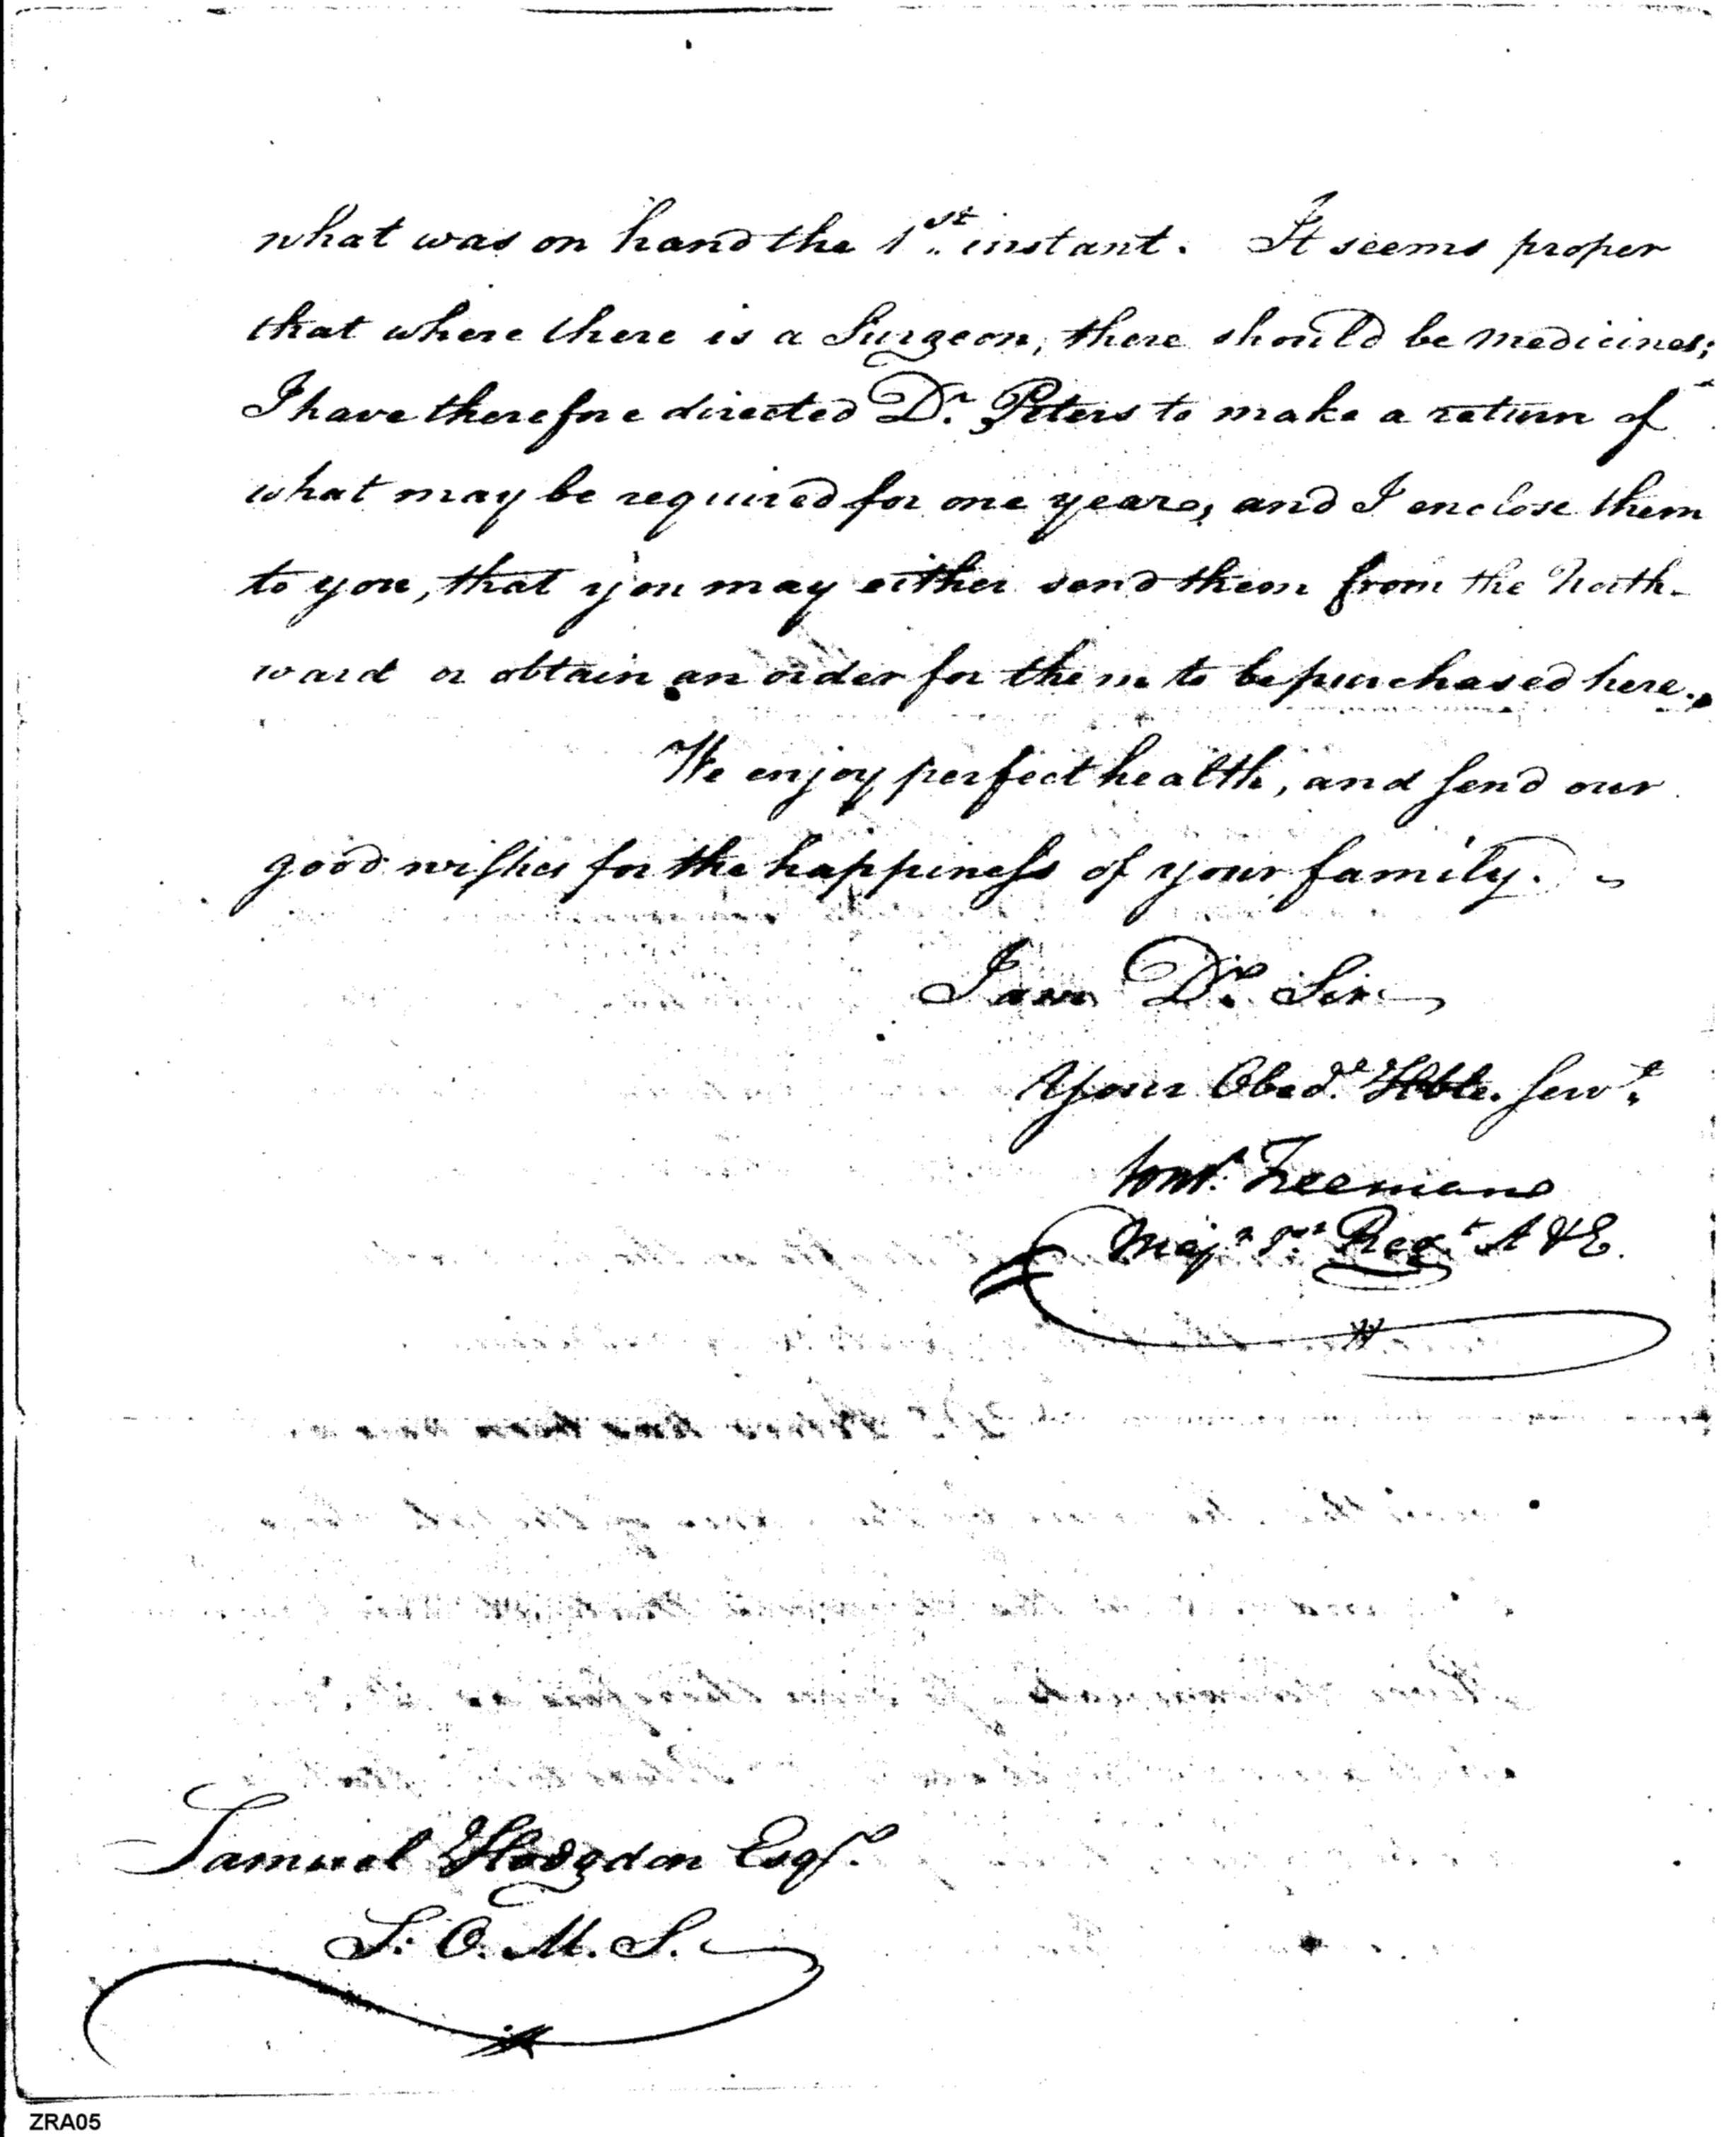 what was on hand the 1st instant. It seems proper
that where there is a Surgeon, there should be medicines;
I have therefore directed Dr. Peters to make a return of
what may be required for one year, and I enclose them
to you, that you may either send them from the North-
ward or obtain an order for them to be purchased here.
We enjoy perfect health, and send our
good wishes for the happiness of your family.
I am Dr. Sir
Your Obedt. Hble. Servt.
Const. Freeman
Majr. 1st Regt A & E.
Samuel Hodgdon Esqr.
S. O. M. S.
ZRA05